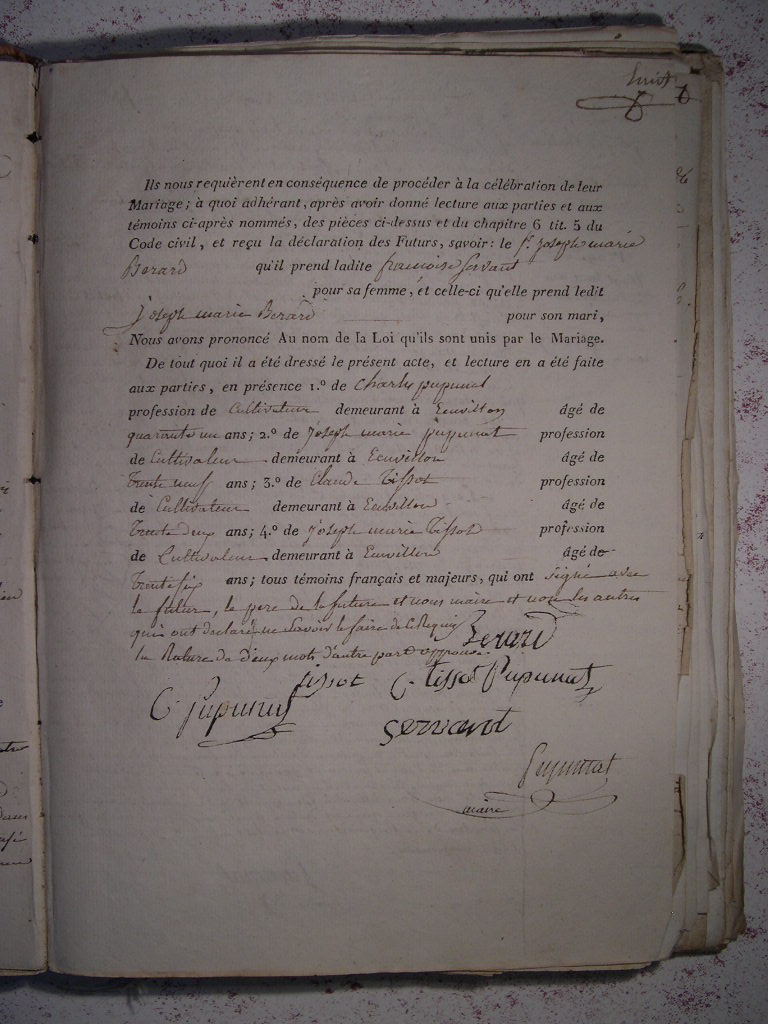 Ils nous requièrent en conséquence de procéder à la célébration de leur
Mariage; à quoi adhérant, après avoir donné lecture aux parties et aux
témoins ci-après nommés, des pièces ci-dessus et du chapitre 6 tit. 5 du
Code civil, et reçu la déclaration des Futurs, savoir: le Sr. joseph marie
Berard qu'il prend ladite francoise Servant
pour sa femme, et celle-ci qu'elle prend ledit
joseph marie Berard pour son mari,
Nous avons prononcé Au nom de la Loi qu'ils sont unis par le Mariage.
De tout quoi il a été dressé le présent acte, et lecture en a été faite
aux parties, en présence 1.º de Charles pupunat
profession de Cultivateur demeurant à Ecuvillon âgé de
quarante un ans; 2.º de joseph marie pupunat profession
de Cultivateur demeurant à Ecuvillon âgé de
trente neuf ans; 3.º de Claude Tissot profession
de Cultivateur demeurant à Ecuvillon âgé de
trente deux ans; 4.º de joseph marie Tissot profession
de Cultivateur demeurant à Ecuvillon âgé de
trente six ans; tous témoins français et majeurs, qui ont signé avec
le futur, le pere de la future et nous maire et non les autres
qui ont declaré ne Savoir le faire de ce Requis
la Rature de deux mots d'autre part approuvé.
Berard
tissot C. tissot Pupunat
C. pupunat
servant
Pupunat
maire